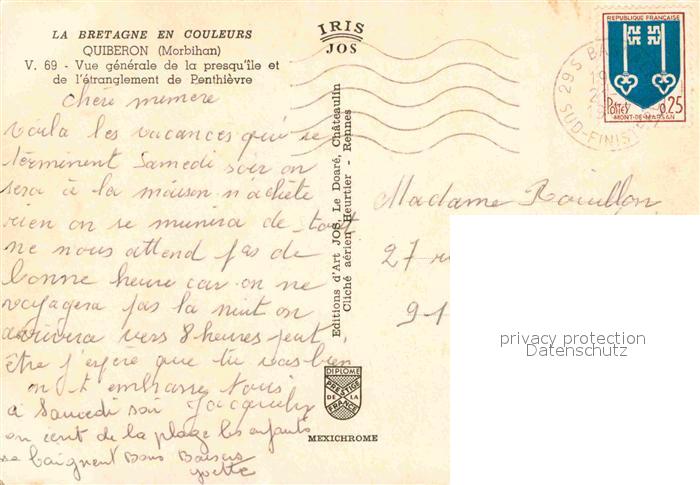 LA BRETAGNE EN COULEURS
QUIBERON (Morbihan)
V. 69 - Vue générale de la presqu'île et
de l'étranglement de Penthièvre
IRIS
JOS
REPUBLIQUE FRANÇAISE
Postes 0,25
MONT-DE-MARSAN
29 S BA
SUD-FINIS
chère memere
voila les vacances qui se
terminent Samedi soir on
sera à la maison n'achète
rien on se munira de tout
ne nous attend pas de
bonne heure car on ne
voyagera pas la nuit on
arrivera vers 8 heures peut
être j'espère que tu vas bien
on t embrasse tous
a Samedi soir Jacqueline
on écrit de la plage les enfants
se baignent Bons Baisers
yvette
Editions d'Art JOS, Le Doaré, Châteaulin
Cliché aérien Heurtier - Rennes
Madame Rouillon
27
91
DIPLOME
PRESTIGE
DE LA
FRANCE
MEXICHROME
privacy protection
Datenschutz